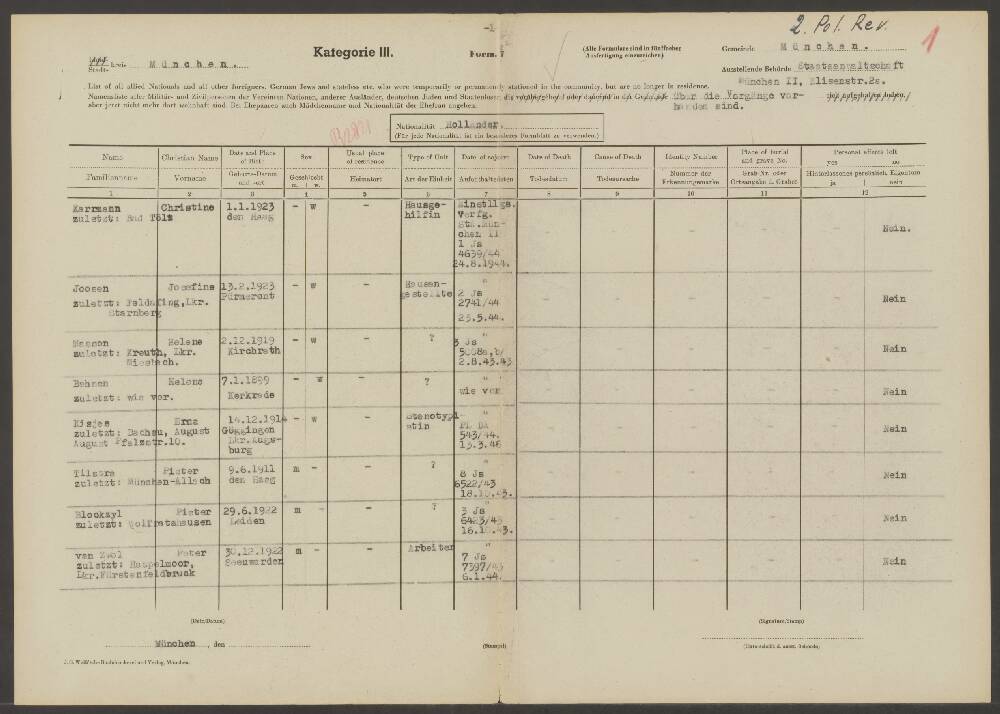 -1-
2. Pol. Rev.
1
Kategorie III.
Form. 7
(Alle Formulare sind in fünffacher
Ausfertigung einzureichen)
Gemeinde München.
Stadt- kreis München.
Ausstellende Behörde Staatsanwaltschaft
München II, Elisenstr.2a.
List of all allied Nationals and all other foreigners, German Jews and stateless etc. who were temporarily or permanently stationed in the community, but are no longer in residence.
Namensliste aller Militär- und Zivilpersonen der Vereinten Nationen, anderer Ausländer, deutschen Juden und Staatenlosen, die über die Vorgänge vor-
aber jetzt nicht mehr dort wohnhaft sind. Bei Ehepaaren auch Mädchenname und Nationalität der Ehefrau angeben. handen sind.
Nationalität Holländer.
(Für jede Nationalität ist ein besonderes Formblatt zu verwenden.)
Name Christian Name Date and Place of Birth Sex Usual place of residence Type of Unit Date of sojourn Date of Death Cause of Death Identity Number Place of burial and grave No. Personal effects left yes no
Familienname Vorname Geburts-Datum und -ort Geschlecht m. w. Heimatort Art der Einheit Aufenthaltsdaten Todesdatum Todesursache Nummer der Erkennungsmarke Grab-Nr. oder Ortsangabe d. Grabes Hinterlassenes persönlich. Eigentum ja nein
1 2 3 4 5 6 7 8 9 10 11 12
Karrmann Christine 1.1.1923 - w - Hausge- Einstllgs.
zuletzt: Bad Tölz den Haag hilfin Verfg.
Sta.Mün-
chen II Nein.
1 Js
4639/44
24.8.1944.
Joosen Josefine 13.2.1923 - w - Hausan- "
zuletzt: Feldafing, Lkr. gestellte 2 Js Nein
Starnberg 2741/44
23.5.44.
Masson Helene 2.12.1919 - w - ? "
zuletzt: Kreuth, Lkr. Kirchrath 3 Js Nein
Miesbach. 5008a,b/
2.8.43.43
Helene 7.1.1899 - w - ? "
zuletzt: wie vor. Kerkrade wie vor Nein
Erna 14.12.1914 - w - Stenotypi- "
zuletzt: Dachau, August Göggingen stin Nein
August Pfalzstr.10. Lkr.Augs- 543/44.
burg 13.3.46
Tilstra Pieter 9.6.1911 m - - ? "
zuletzt: München-Allach den Haag 8 Js Nein
6522/43
18.10.43.
Blockzyl Pieter 29.6.1922 m - - ? "
zuletzt: Wolfratshausen Leiden 3 Js Nein
6423/43
16.10.43.
van Zwol Peter 30.12.1922 m - - Arbeiter "
zuletzt: Haspelmoor, Leeuwarden 7 Js Nein
Lkr.Fürstenfeldbruck 7397/43
6.1.44.
(Date/Datum)
München , den
(Stempel)
(Signature/Stamp)
(Unterschrift d. ausst. Behörde)
J. G. Weiß'sche Buchdruckerei und Verlag, München.